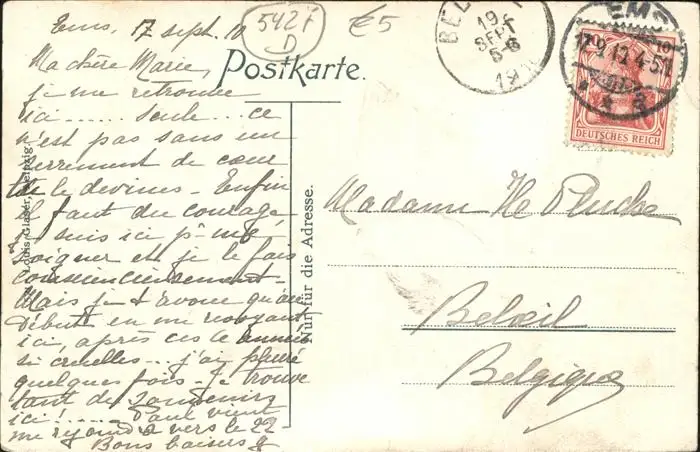 Ems, 17 sept. 10
5427
D
€5
Ma chère Marie,
je me retrouve
ici ...... seule... ce
n'est pas sans un
serrement de cœur
tu le devines - Enfin
il faut du courage
suis ici pr me
soigner et je le fais
consciencieusement -
Mais je t'avoue qu'au
début en me revoyant
ici, après ces
si cruelles... j'ai pleuré
quelques fois - je trouve
tant de souvenirs
ici! ...... Paul vient
me rejoindre vers le 22
Bons baisers
Postkarte.
Louis Glaser, Leipzig.
Nur für die Adresse.
BEL
19
SEPT
19
EMS
17.9.10 4-5N
10
DEUTSCHES REICH
Madame
Belœil
Belgique